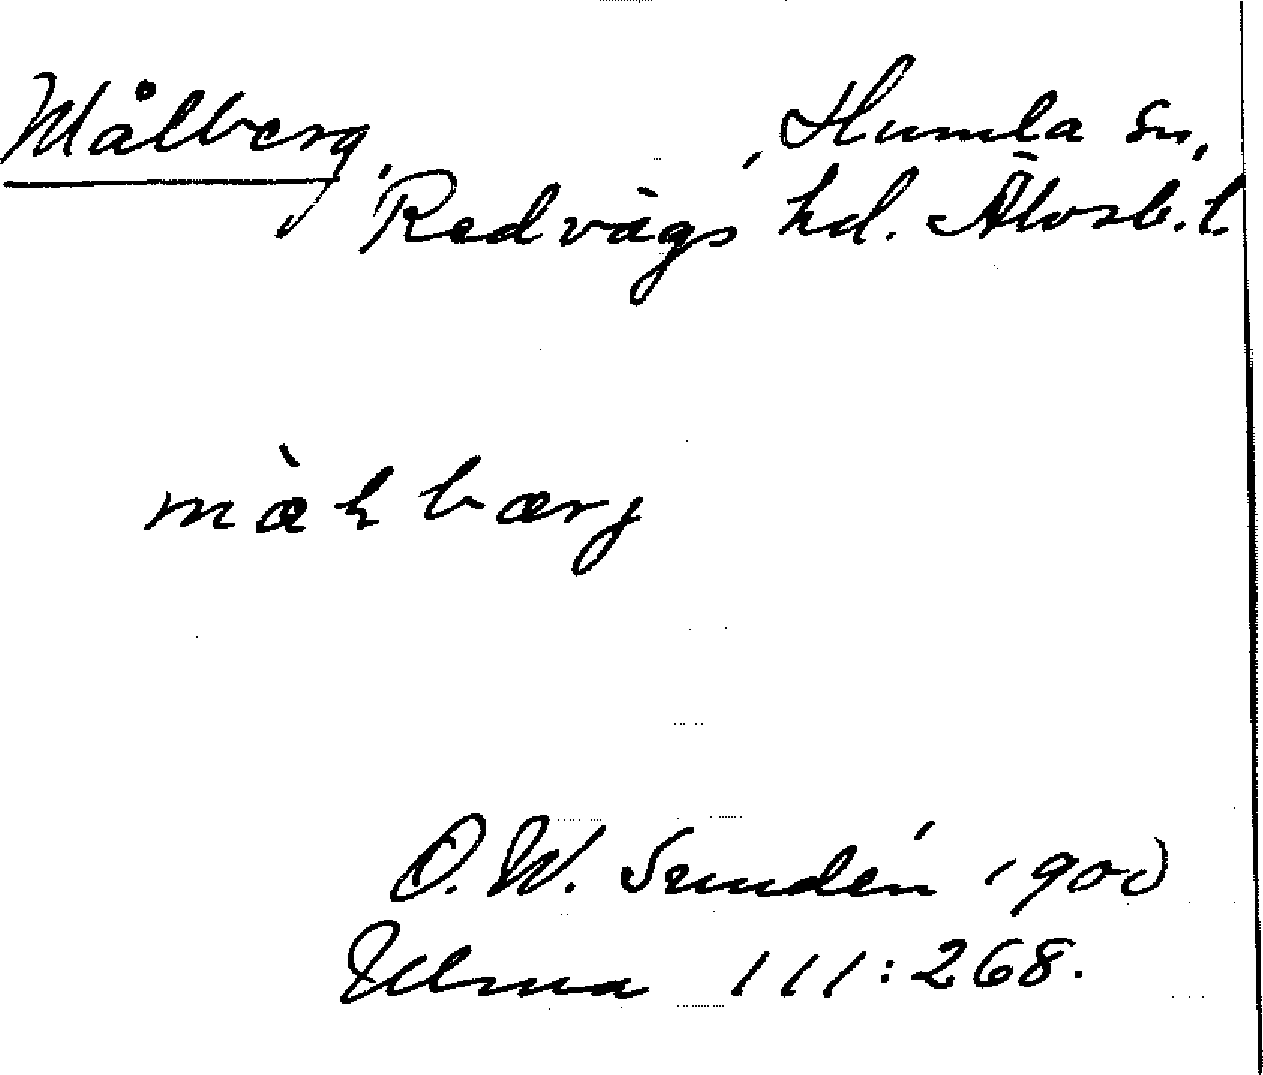 Målberg, Humla sn,
Redvägs hd. Älvsb. l.
màlbærj
O. W. Sundén 1900
Ulma 111:268.